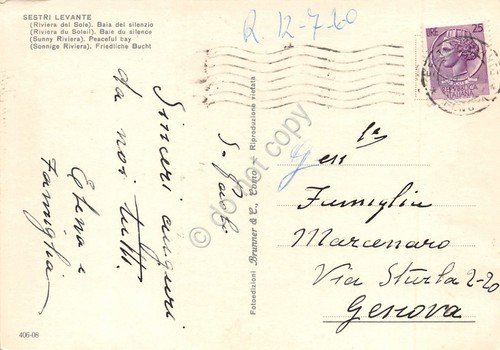 SESTRI LEVANTE
(Riviera del Sole). Baia del silenzio
(Riviera du Soleil). Baie du silence
(Sunny Riviera). Peaceful bay
(Sonnige Riviera). Friedliche Bucht
R. 12-7-60
LIRE 25
Sinceri auguri
da noi tutti.
Elena e
Famiglia
Fotoedizioni Brunner & C., Como Riproduzione vietata
do not copy
Gen
Famiglia
Marcenaro
Via Sturla 2-20
Genova
406-08